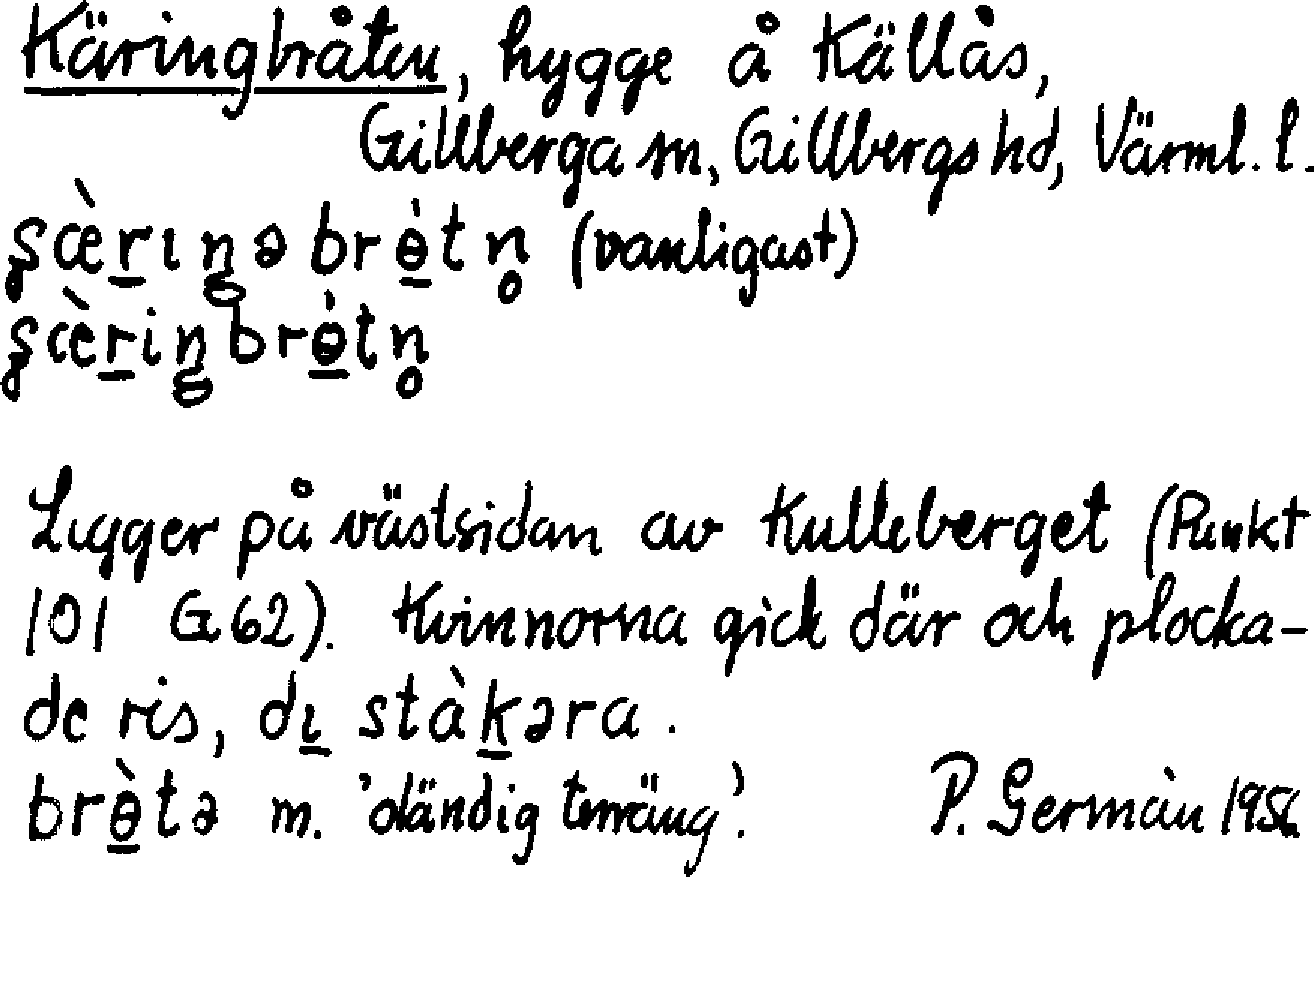 Käringbråten, hygge å Källås,
Gillberga sn, Gillbergs hd, Värml. l.
ʂæ̀r̲ɪŋəbrɵ̲̀tn̥ (vanligast)
ʂæ̀r̲iŋbrɵ̲̀tn̥
Ligger på västsidan av Kulleberget (Punkt
101 G62). Kvinnorna gick där och plocka-
de ris, dɪ̲ stàk̲əra.
brɵ̲̀tə m. 'oländig terräng'. P. Germàn 1956.